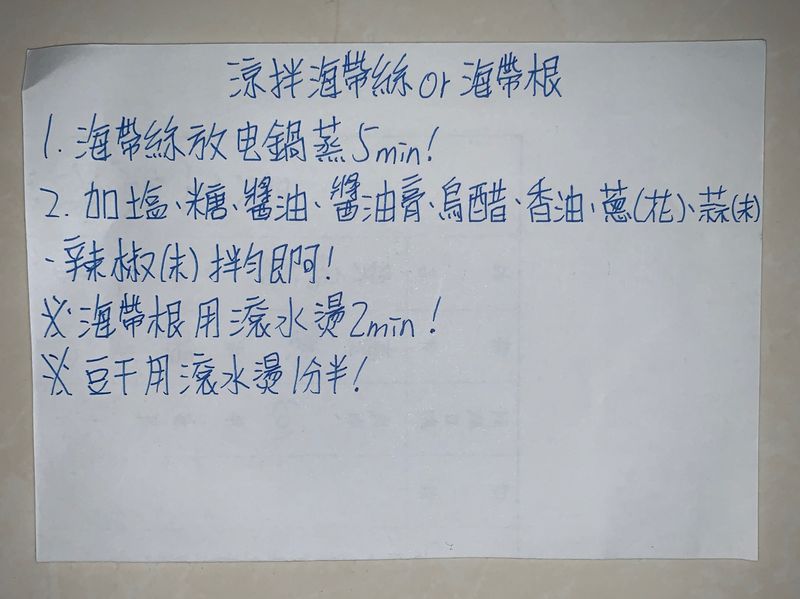 涼拌海帶絲 or 海帶根
1. 海帶絲放电鍋蒸5min!
2. 加塩、糖、醬油、醬油膏、烏醋、香油、蔥(花)、蒜(末)
、辣椒(末)拌勻即可!
※ 海帶根用滾水燙2min!
※ 豆干用滾水燙1分半!